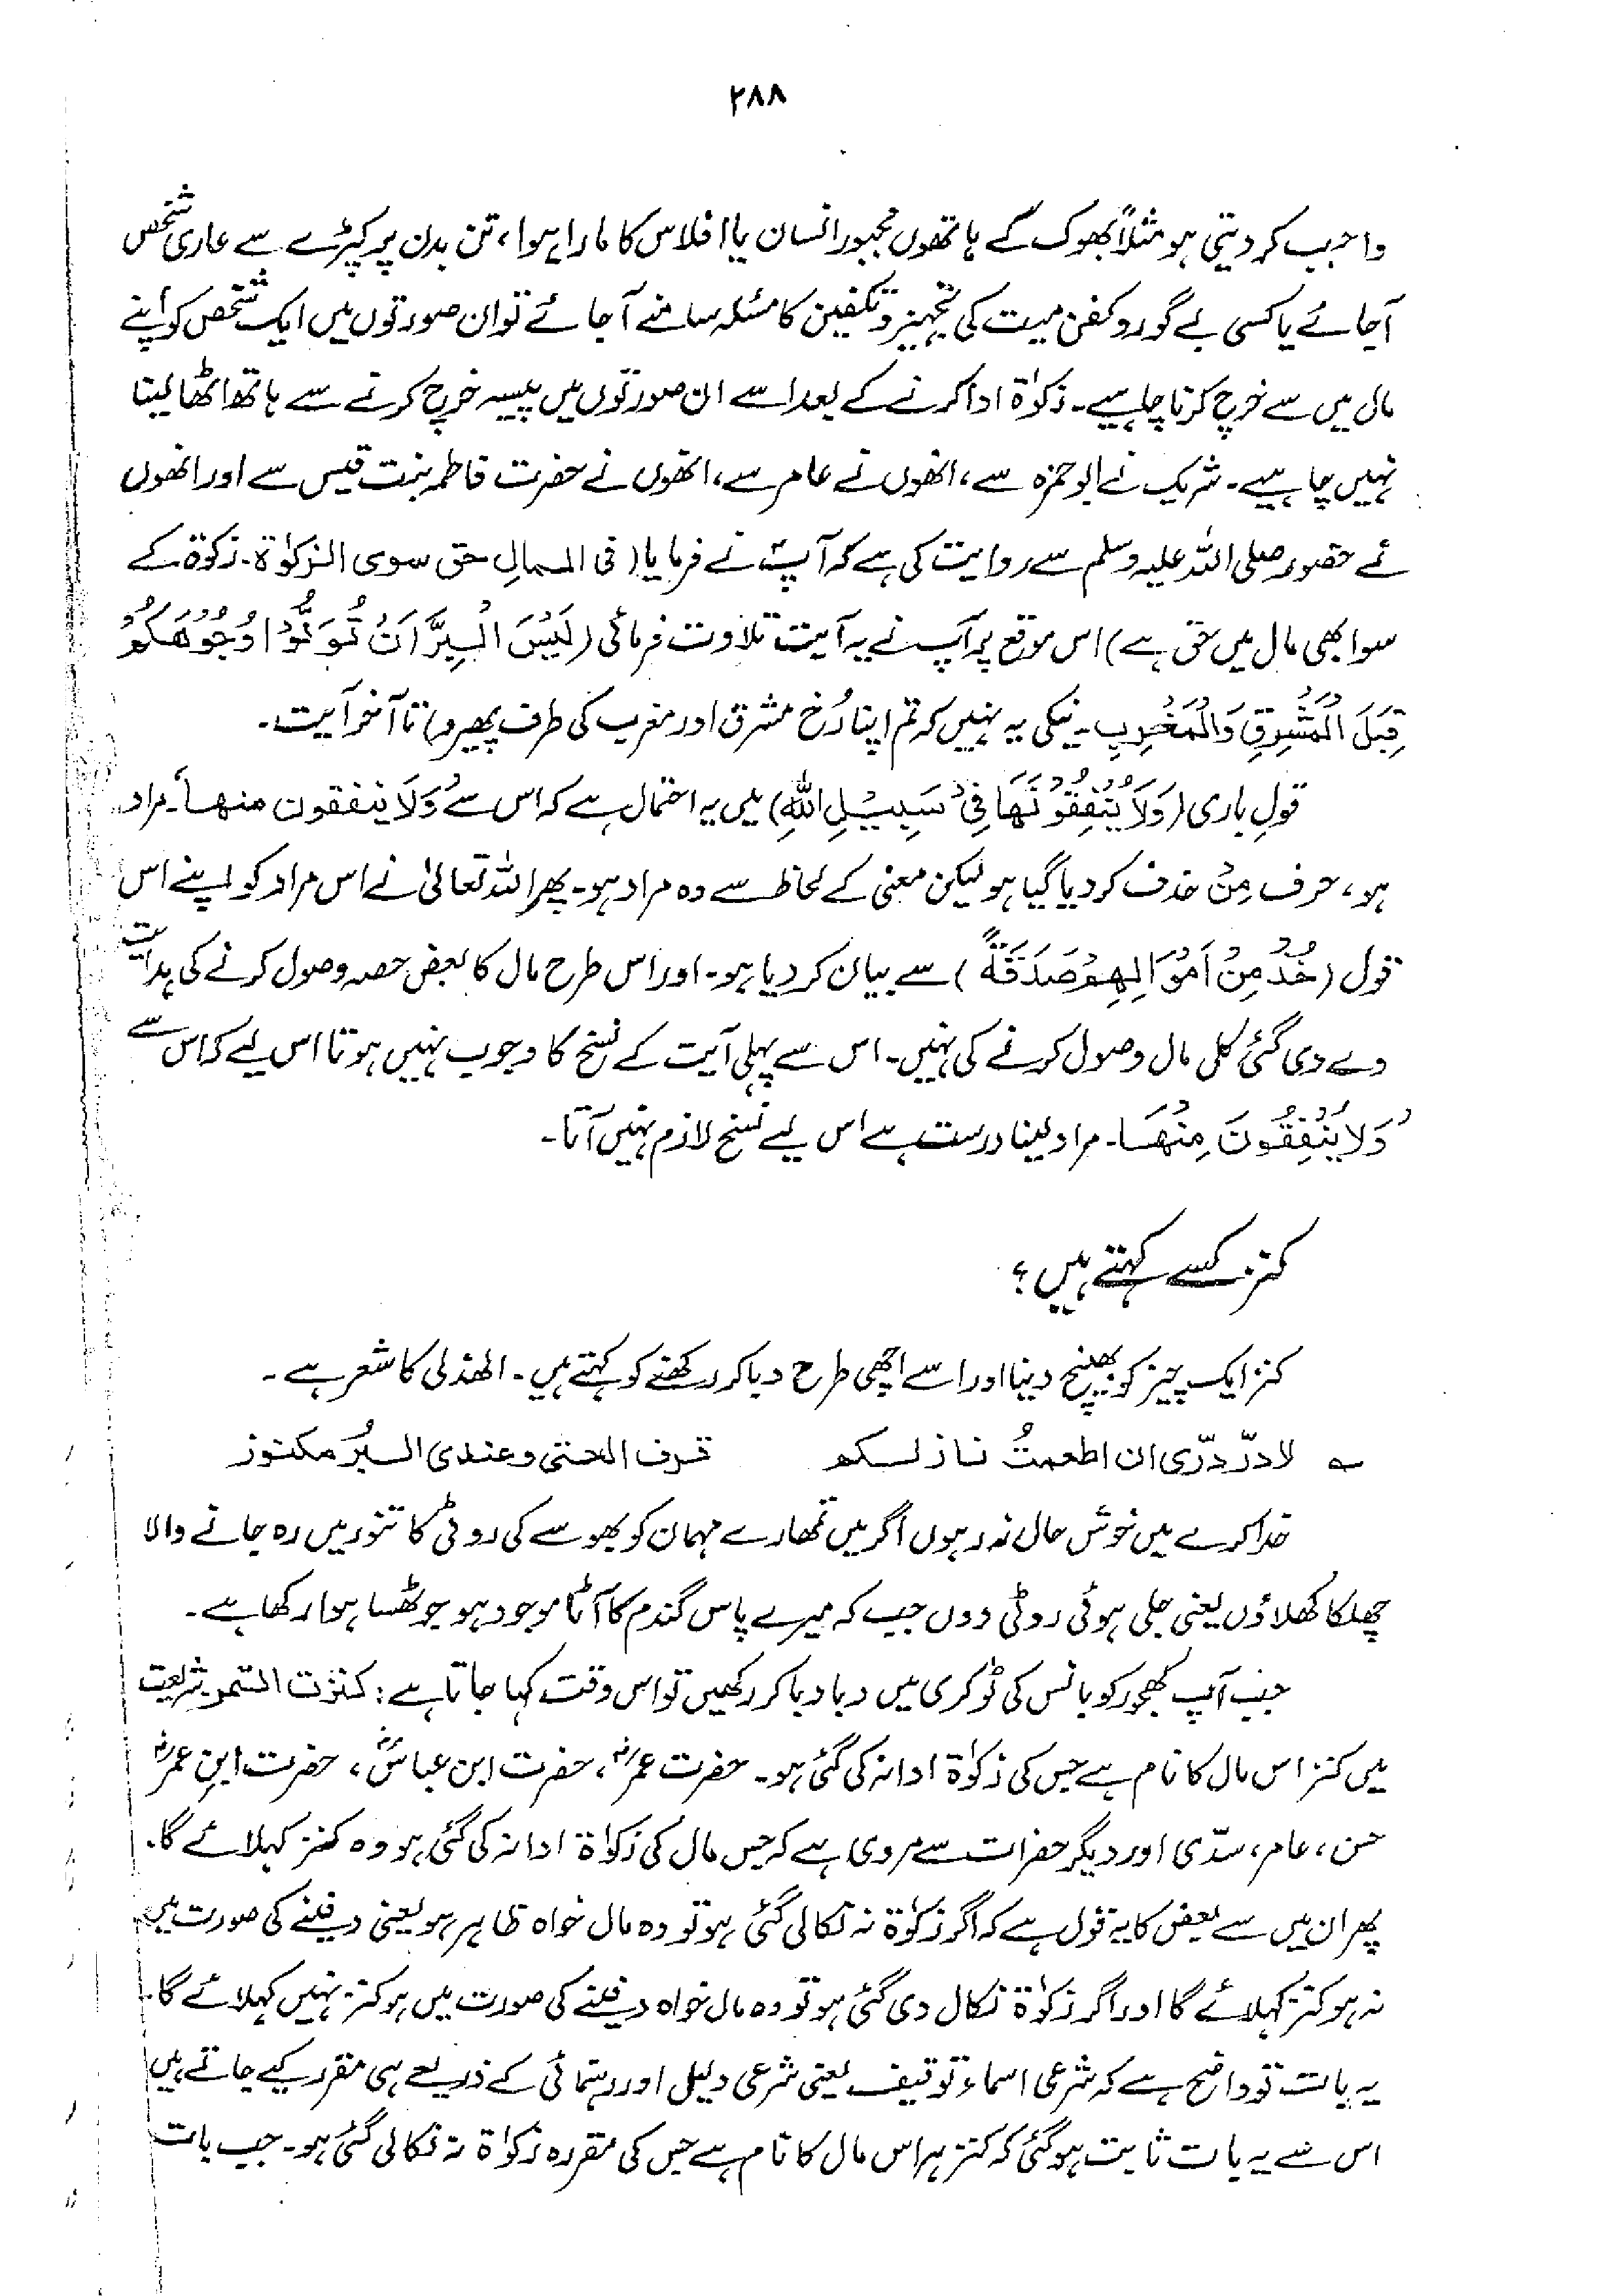 ۲۸۸
واجب کر دیتی ہو مثلاً بھوک کے ہاتھوں مجبور انسان یا افلاس کا مارا ہوا، تن بدن پر کپڑے سے عاری شخص
آجائے یا کسی بے گوروکفن میت کی تجہیز وتکفین کا مسئلہ سامنے آجائے تو ان صورتوں میں ایک شخص کو اپنے
مال میں سے خرچ کرنا چاہیے۔ زکوٰۃ ادا کرنے کے بعد اسے ان صورتوں میں پیسہ خرچ کرنے سے ہاتھ اٹھا لینا
نہیں چاہیے۔ شریک نے ابوحمزہ سے، انھوں نے عامر سے، انھوں نے حضرت فاطمہ بنت قیس سے اور انھوں
نے حضور صلی اللہ علیہ وسلم سے روایت کی ہے کہ آپؐ نے فرمایا (فی المالِ حق سوی الزکوٰۃ۔ زکوٰۃ کے
سوا بھی مال میں حق ہے) اس موقع پر آپ نے یہ آیت تلاوت فرمائی (لَيْسَ الْبِرَّ اَنْ تُوَلُّوْا وُجُوْهَكُمْ
قِبَلَ الْمَشْرِقِ وَالْمَغْرِبِ۔ نیکی یہ نہیں کہ تم اپنا رُخ مشرق اور مغرب کی طرف پھیرو) تا آخر آیت۔
قولِ باری (وَلَا يُنْفِقُوْنَهَا فِيْ سَبِيْلِ اللّٰهِ) میں یہ احتمال ہے کہ اس سے ُوَلَا ینفقون منھا۔ مراد
ہو، حرف مِنْ حذف کر دیا گیا ہو لیکن معنی کے لحاظ سے وہ مراد ہو۔ پھر اللہ تعالیٰ نے اس مراد کو اپنے اس
قول (خُذْ مِنْ اَمْوَالِهِمْ صَدَقَةً) سے بیان کر دیا ہو۔ اور اس طرح مال کا بعض حصہ وصول کرنے کی ہدایت
دے دی گئی کل مال وصول کرنے کی نہیں۔ اس سے پہلی آیت کے نسخ کا وجوب نہیں ہوتا اس لیے کہ اس سے
ُوَلَا يُنْفِقُوْنَ مِنْهَا۔ مراد لینا درست ہے اس لیے نسخ لازم نہیں آتا۔
کنز کسے کہتے ہیں؟
کنز ایک چیز کو بھینچ دینا اور اسے اچھی طرح دبا کر رکھنے کو کہتے ہیں۔ الھذلی کا شعر ہے۔
؎ لا درّ درّی ان اطعمتُ نازلکم قرف الحتی وعندی البُر مکنوز
خدا کرے میں خوش حال نہ رہوں اگر میں تمھارے مہمان کو بھوسے کی روٹی کا تنور میں رہ جانے والا
چھلکا کھلاؤں یعنی جلی ہوئی روٹی دوں جب کہ میرے پاس گندم کا آٹا موجود ہو جو ٹھسا ہوا رکھا ہے۔
جب آپ کھجور کو بانس کی ٹوکری میں دبا دبا کر رکھیں تو اس وقت کہا جاتا ہے: کنزت التمر شریعت
میں کنز اس مال کا نام ہے جس کی زکوٰۃ ادا نہ کی گئی ہو۔ حضرت عمرؓ، حضرت ابن عباسؓ، حضرت ابن عمرؓ
حسن، عامر، سدّی اور دیگر حضرات سے مروی ہے کہ جس مال کی زکوٰۃ ادا نہ کی گئی ہو وہ کنز کہلائے گا۔
پھر ان میں سے بعض کا یہ قول ہے کہ اگر زکوٰۃ نہ نکالی گئی ہو تو وہ مال خواہ ظاہر ہو یعنی دفینے کی صورت میں
نہ ہو کنز کہلائے گا اور اگر زکوٰۃ نکال دی گئی ہو تو وہ مال خواہ دفینے کی صورت میں ہو کنز نہیں کہلائے گا۔
یہ بات تو واضح ہے کہ شرعی اسماء توقیف یعنی شرعی دلیل اور رہنمائی کے ذریعے ہی مقرر کیے جاتے ہیں
اس سے یہ بات ثابت ہو گئی کہ کنز ہر اس مال کا نام ہے جس کی مقررہ زکوٰۃ نہ نکالی گئی ہو۔ جب بات